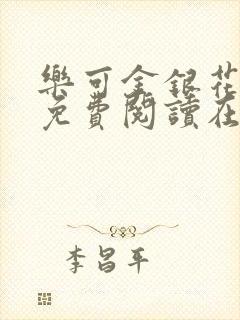 樂可金銀花
免費閱讀在
李昌平